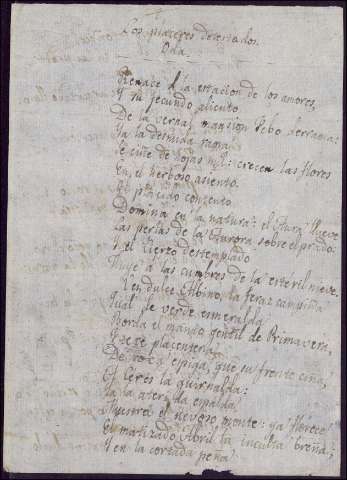 Los placeres decentados.
Oda.
Renace a la estacion de los amores,
Y su fecundo aliento
De la vernal mansion Febo derrama:
Ya la desnuda rama
Se ciñe de hojas mil: crecen las flores
En el herboso asiento.
El plácido contento
Domina en la natura: el Aura llueve
Las perlas de la Aurora sobre el prado:
Y el cierzo destemplado
Huye a las cumbres de la esteril nieve.
Ven dulce Albino, la feraz campiña
Cual de verde esmeralda
Borda el manto gentil de Primavera,
Crece placentera
De roca espiga, que su frente ciña,
Of Ceres la guirnalda:
La ateri da espalda
Muestra el nevoso monte: ya florece
El matizado Abril la inculta breña;
Y en la cortada peña